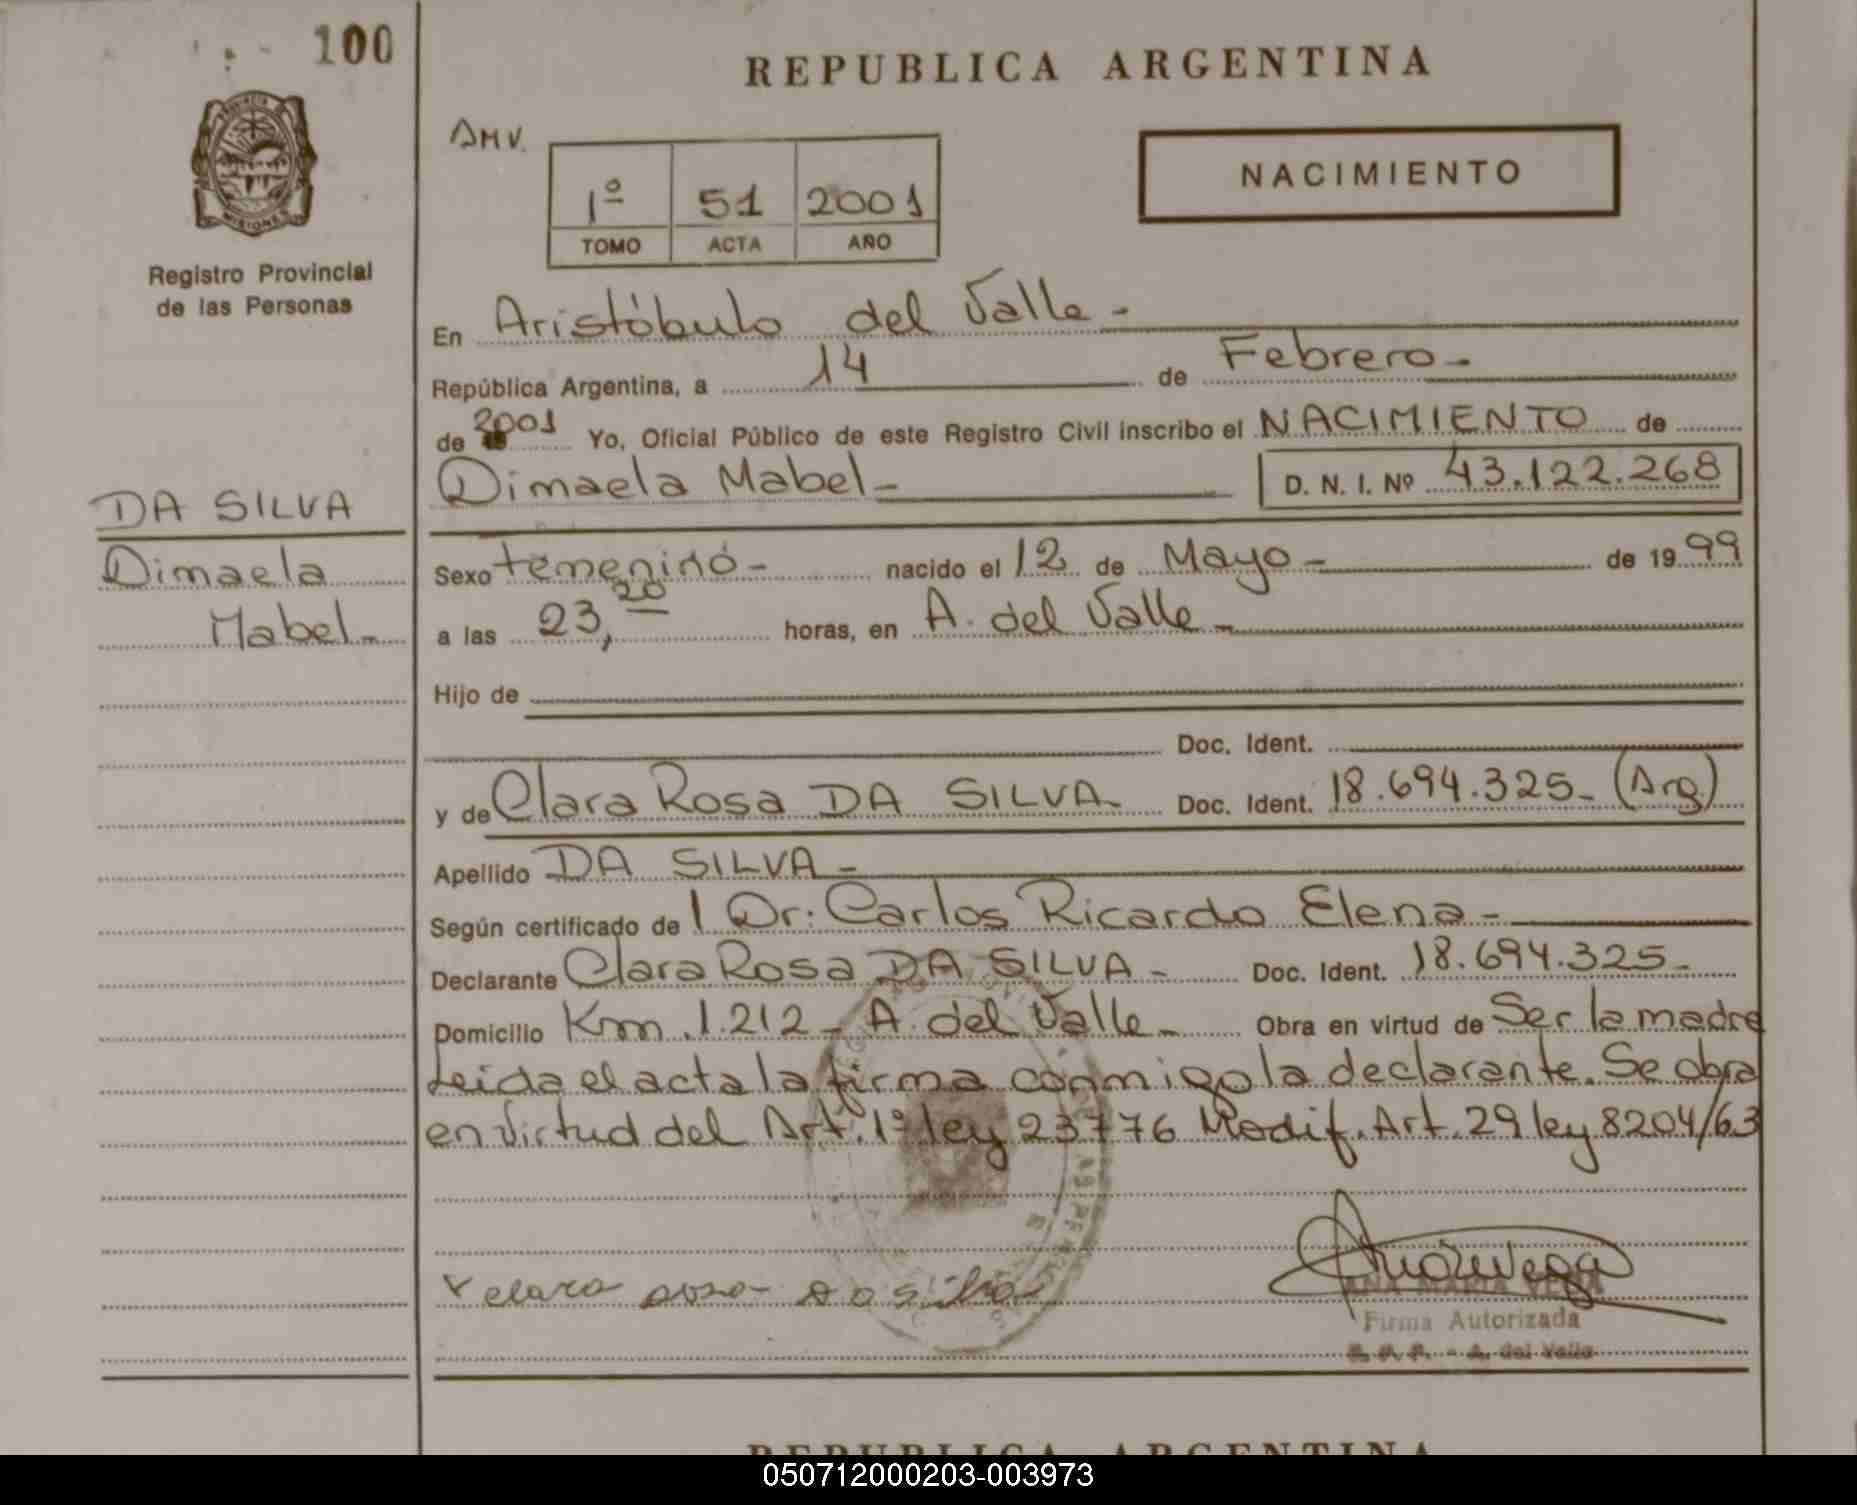 100
REPUBLICA ARGENTINA
PROVINCIA
MISIONES
Registro Provincial
de las Personas
AMV.
1º 51 2001
TOMO ACTA AÑO
NACIMIENTO
En Aristóbulo del Valle -
República Argentina, a 14 de Febrero -
de 2001 Yo, Oficial Público de este Registro Civil inscribo el NACIMIENTO de
Dimaela Mabel - D. N. I. Nº 43.122.268
DA SILVA
Dimaela
Mabel -
Sexo femenino - nacido el 12 de Mayo - de 1999
a las 23,20 horas, en A. del Valle -
Hijo de
Doc. Ident.
y de Clara Rosa DA SILVA - Doc. Ident. 18.694.325 - (Arg)
Apellido DA SILVA -
Según certificado de l Dr: Carlos Ricardo Elena -
Declarante Clara Rosa DA SILVA - Doc. Ident. 18.694.325 -
Domicilio Km. 1.212 - A. del Valle - Obra en virtud de Ser la madre
Leida el acta la firma conmigo la declarante. Se obra
en virtud del Art. 1º ley 23776 Modif. Art. 29 ley 8204/63
x clara rosa da silva
ANA MARIA VEGA
Firma Autorizada
R. P. P. - A. del Valle
REPUBLICA ARGENTINA
050712000203-003973